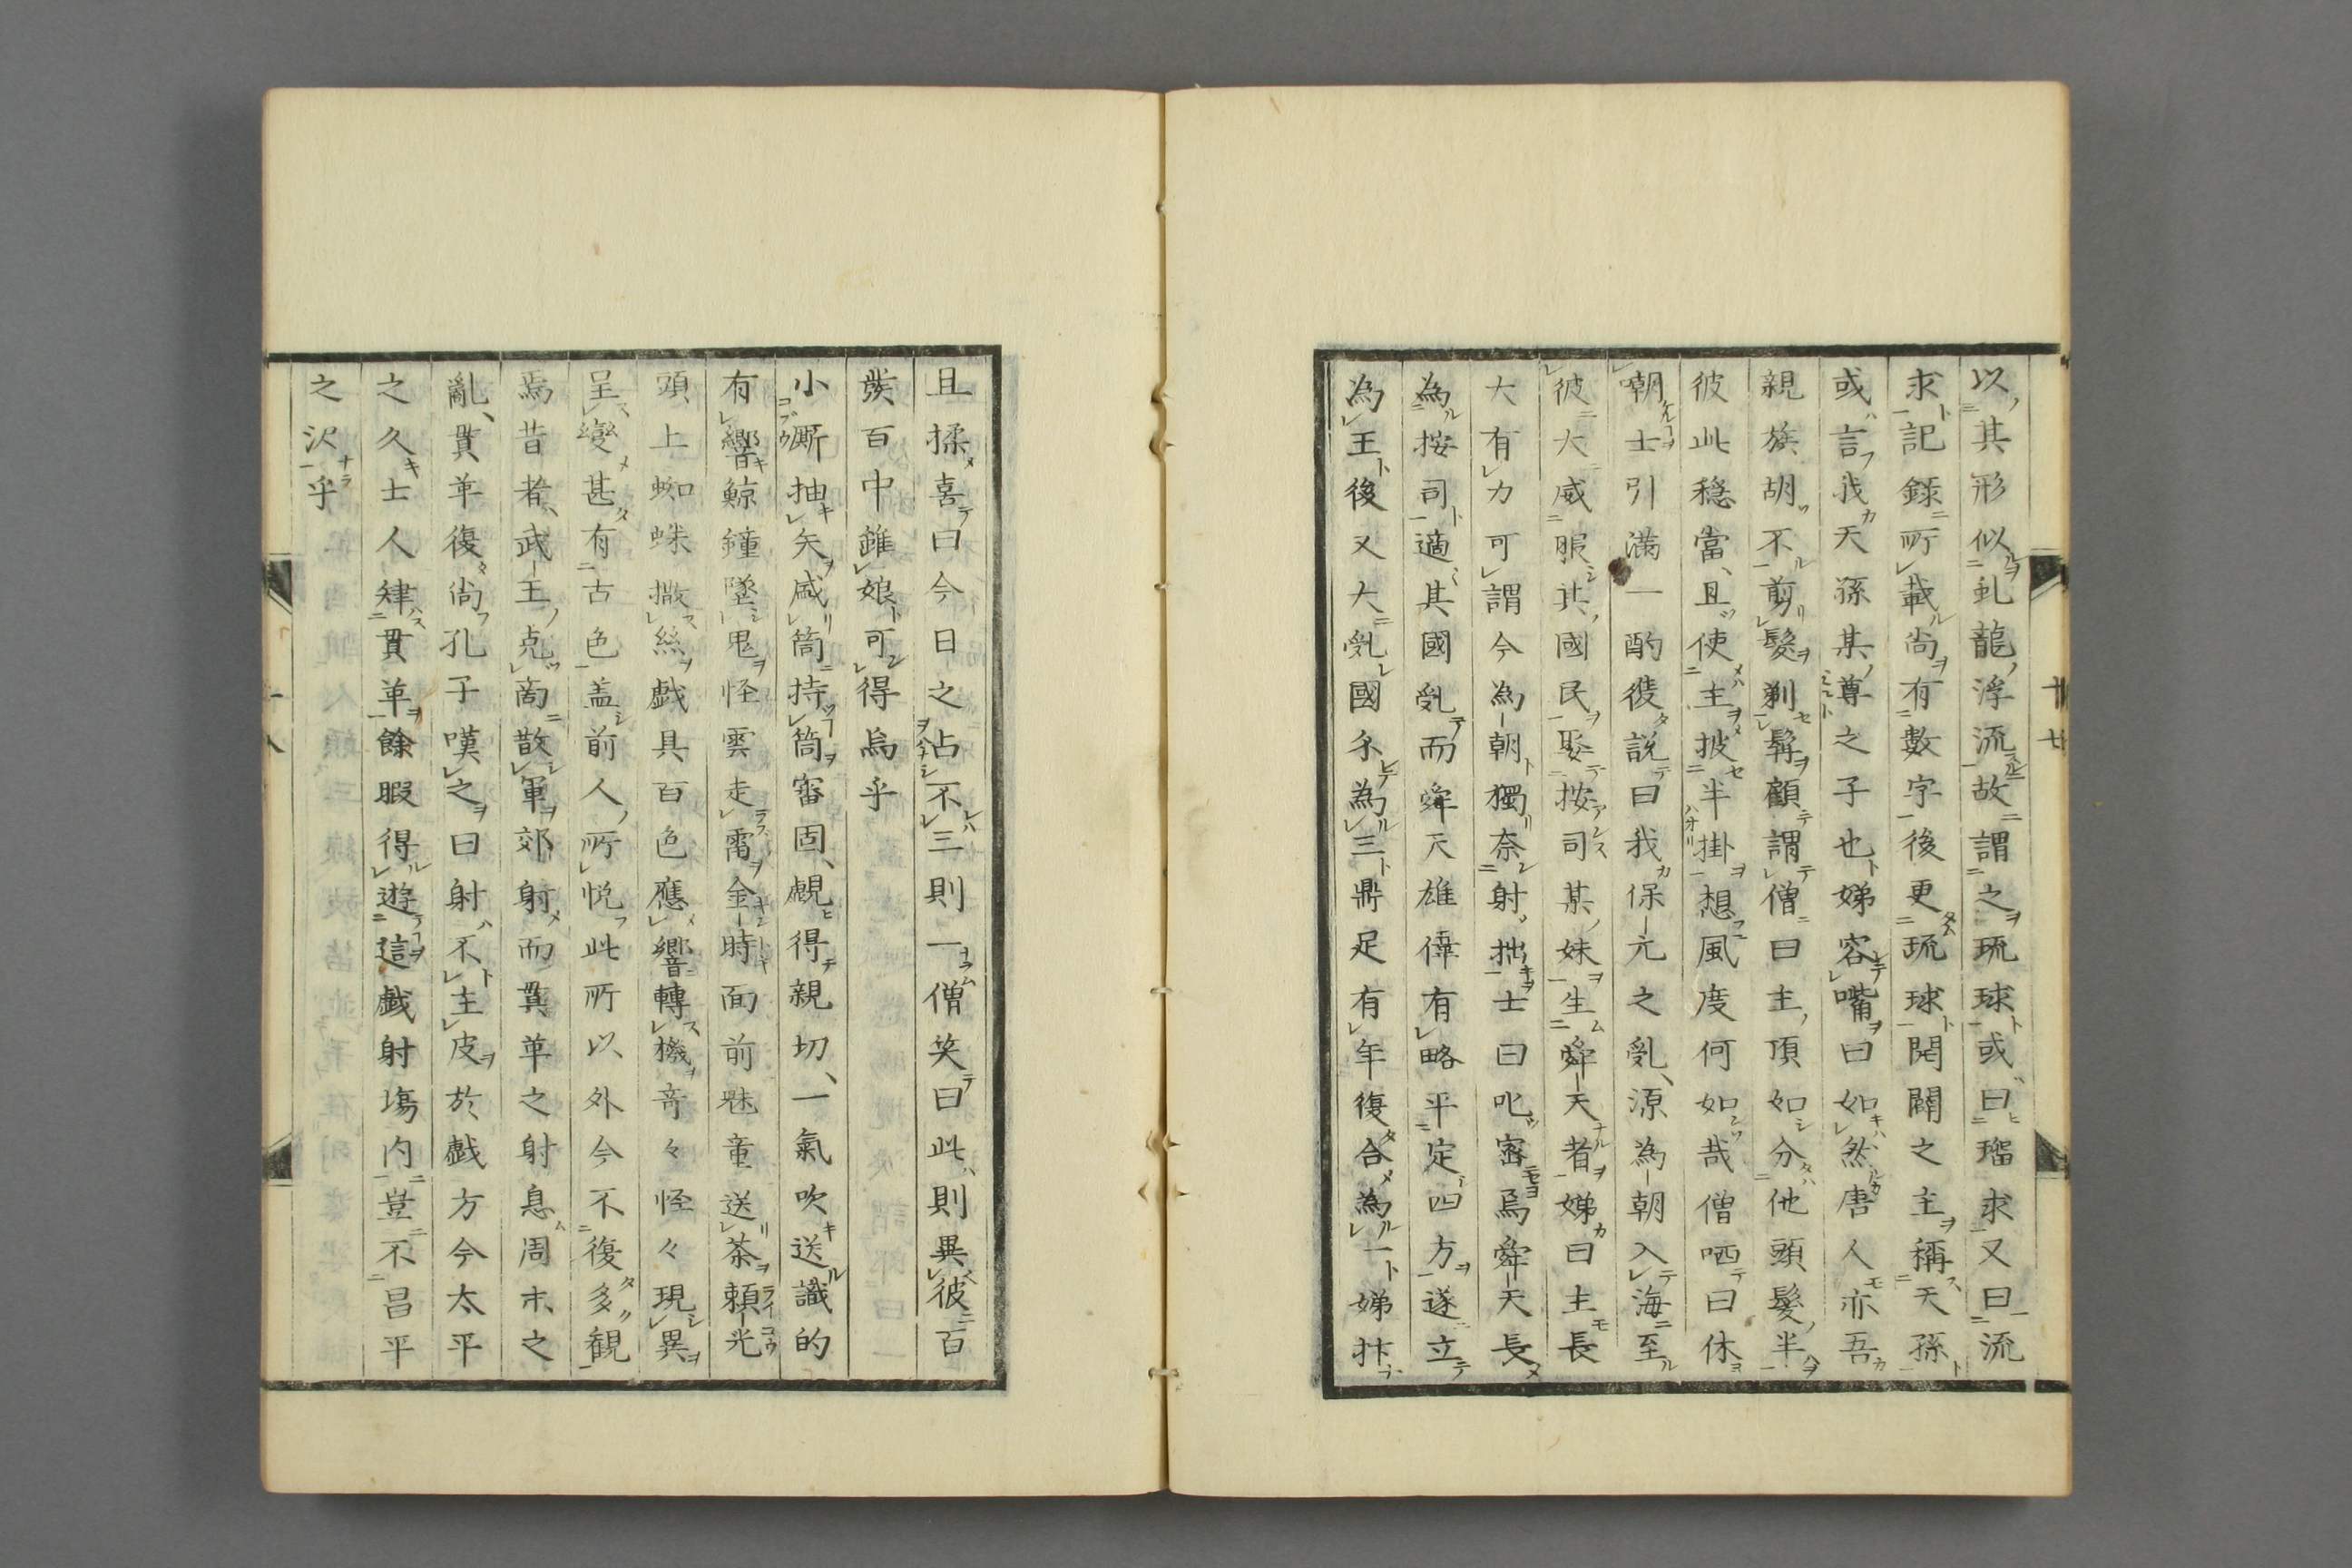 以其形似虬龍浮流故謂之琉球或曰瑠求又曰流
求記録所載尚有數字後更琉球開闢之主稱天孫
或言我天孫某尊之子也娣容嘴曰如然唐人亦吾
親族胡不剪髮剃髯顧謂僧曰主頂如分他頭髮半
彼此穏當且使主披半掛想風度何如哉僧哂曰休
嘲士引滿一酌徔説曰我保元之亂源為朝入海至
彼大威服其國民娶按司某妹生舜天者娣曰主長
大有力可謂今為朝獨奈射拙士曰叱窓烏舜天長
為按司適其國乱而舜天雄偉有略平定四方遂立
為王後又大乱國分為三鼎足有年復合為一娣抃
且揉喜曰今日之占不三則一僧笑曰此則異彼百
發百中錐娘可得烏乎
小厮抽矢戚筒持筒審固覷得親切一氣吹送識的
有響鯨鐘墜鬼怪雲走雷金時面前魅童送茶頼光
頭上蜘蛛撒絲戯具百色應響轉機竒々怪々現異
呈變甚有古色盖前人所悦此所以外今不復多観
焉昔者武王克商散軍郊射而貫革之射息周末之
亂貫革復尚孔子嘆之曰射不主皮於戯方今太平
之久士人肄貫革餘暇得遊這戯射塲内豈不昌平
之沢乎
廿七